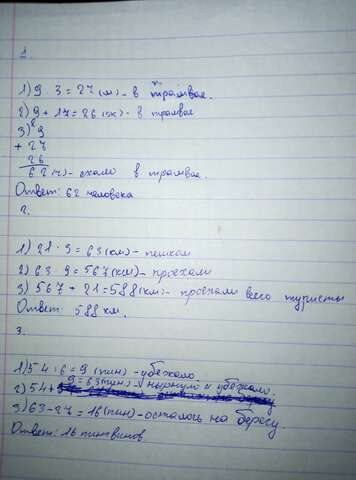 1.
1) 9 · 3 = 27 (м) - в трамвае.
2) 9 + 17 = 26 (ж) - в трамвае
3) 9
+ 27
26
62 (ч) - ехало в трамвае.
Ответ: 62 человека
2.
1) 21 · 3 = 63 (км) - пешком
2) 63 · 9 = 567 (км) - проехали
3) 567 + 21 = 588 (км) - проехали всего туристы
Ответ: 588 км.
3.
1) 54 : 6 = 9 (пин) - убежало.
2) 54 + 9 = 63 (пин) - нырнуло и убежало.
3) 63 - 27 = 16 (пин) - осталось на берегу.
Ответ: 16 пингвинов